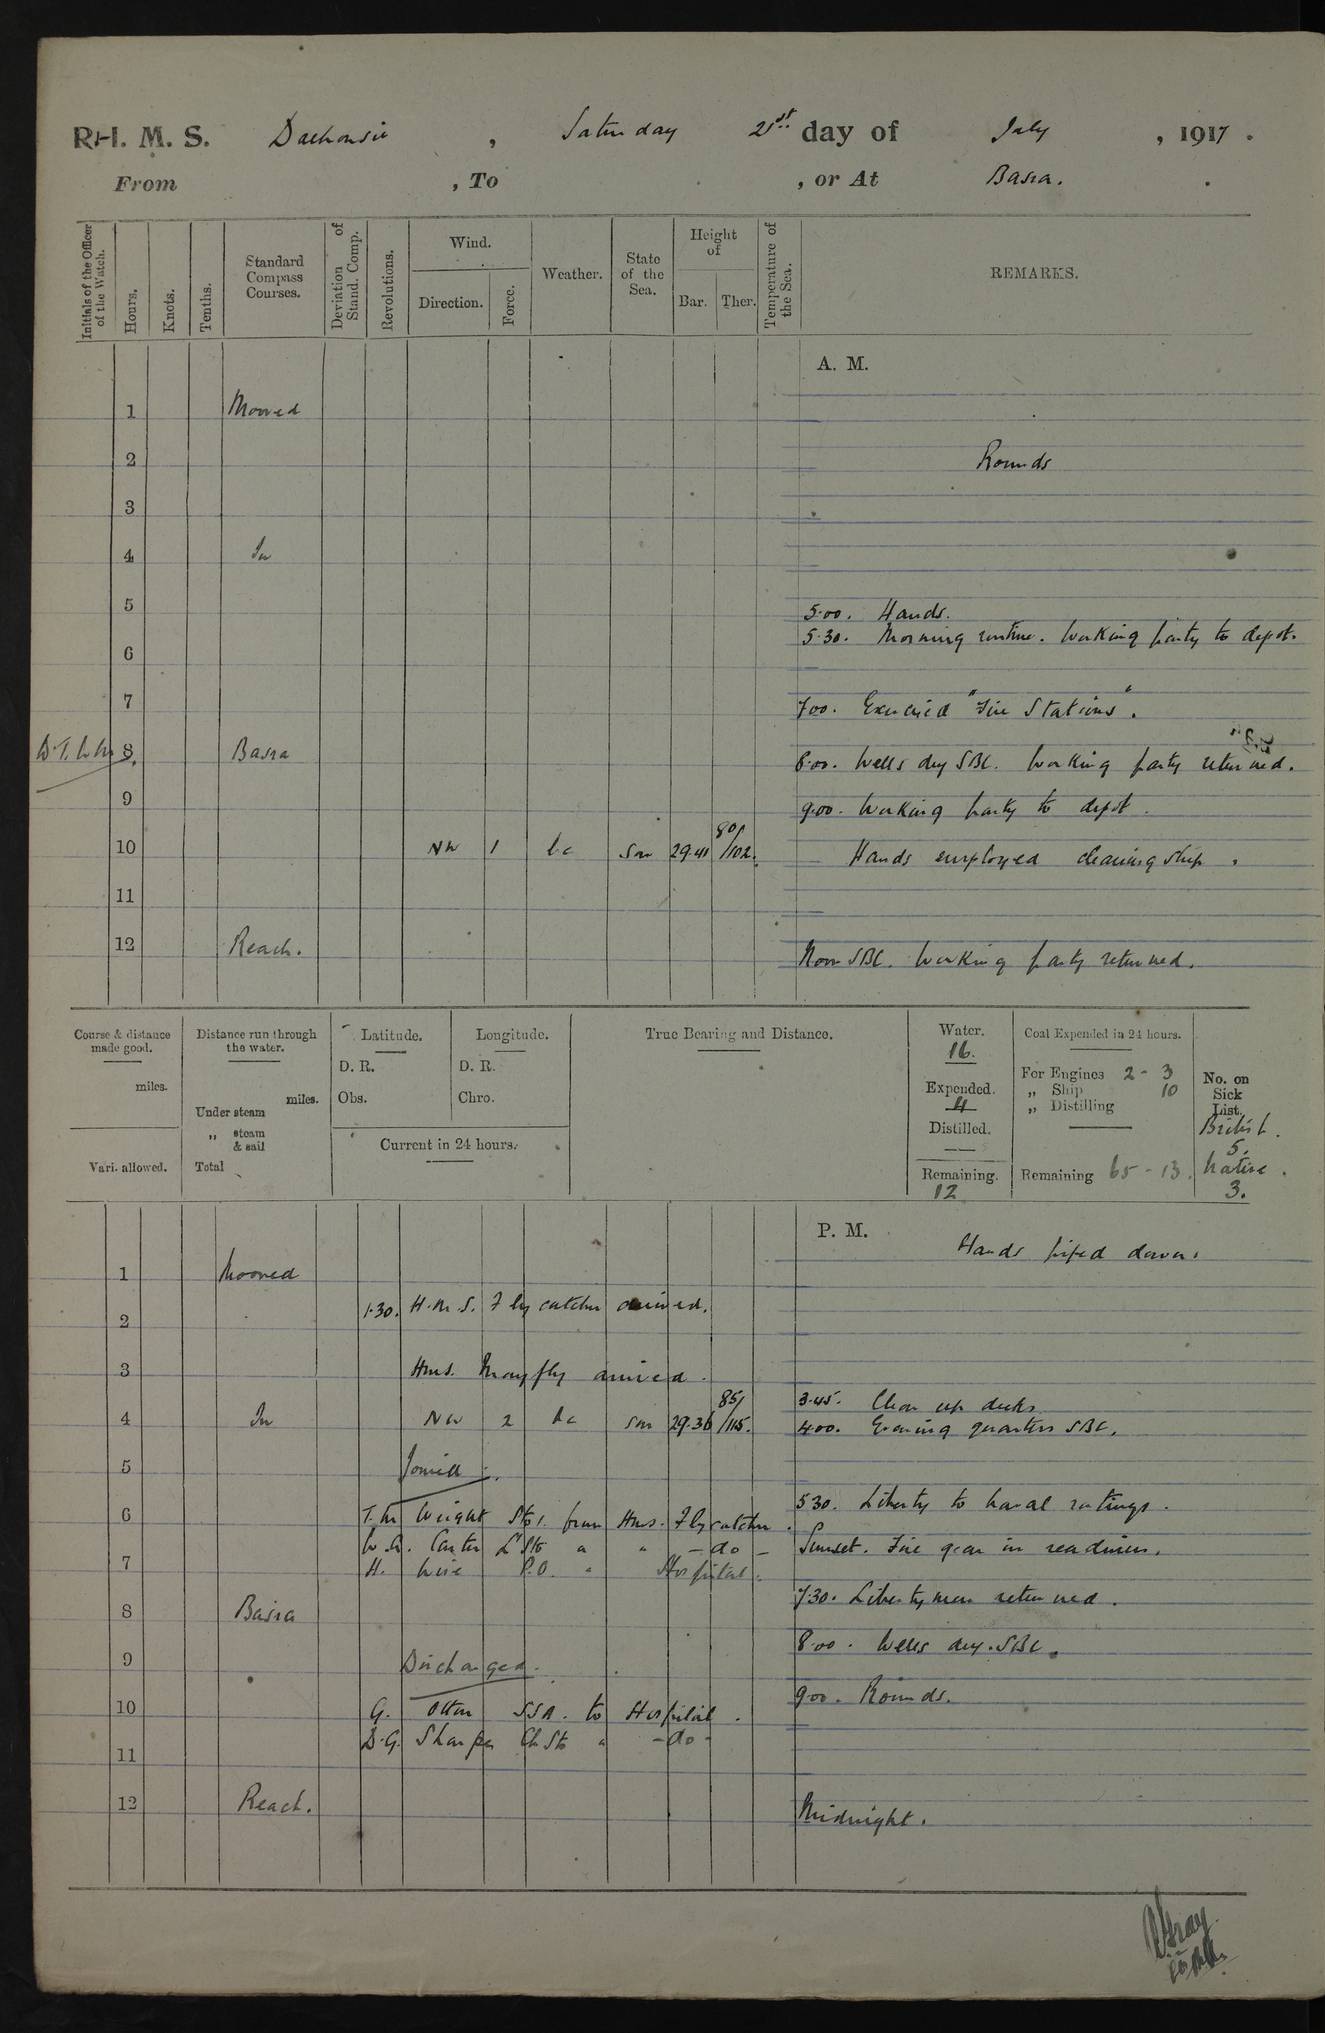 R.I.M.S. Dalhousie, Saturday 21st day of July, 1917.
From , To , or At Basra.
Initials of the Officer of the Watch.
Hours.
Knots.
Tenths.
Standard Compass Courses.
Deviation of Stand. Comp.
Revolutions.
Wind.
Direction.
Force.
Weather.
State of the Sea.
Height of
Bar.
Ther.
Temperature of the Sea.
REMARKS.
A. M.
1 Moored
2 Rounds
3
4 In
5 5.00. Hands.
5.30. Morning routine. Working party to depot.
6
7 7.00. Exercised "Fire Stations".
8 Basra 8.00. Wells dry SBC. Working party returned.
9 9.00. Working party to depot.
10 NW 1 bc Sm 29.41 80/102. Hands employed cleaning ship.
11
12 Reach. Noon SBC. Working party returned.
Course & distance made good.
miles.
Vari. allowed.
Distance run through the water.
miles.
Under steam
„ steam & sail
Total
Latitude.
D. R.
Obs.
Longitude.
D. R.
Chro.
Current in 24 hours.
True Bearing and Distance.
Water.
16.
Expended.
4
Distilled.
Remaining.
12
Coal Expended in 24 hours.
For Engines 2 - 3
„ Ship 10
„ Distilling
Remaining 65 - 13.
No. on Sick List.
British.
5.
Native.
3.
P. M. Hands piped down.
1 Moored
1.30. H.M.S. Flycatcher arrived.
2
3 HMS. Mayfly arrived.
3.45. Clear up decks
4 In NW 2 bc Sm 29.36 85/115. 4.00. Evening quarters SBC.
5 Joined.
5.30. Liberty to naval ratings.
6 T.M. Wright Sto 1. from HMS. Flycatcher.
W.A. Carter L Sto " " -do- Sunset. Fire gear in readiness.
7 H. Wise P.O. " Hospital.
7.30. Libertymen returned.
8 Basra
8.00. Wells dry. SBC.
9 Discharged.
9.00. Rounds.
10 G. Otton SSA. to Hospital.
D.G. Sharpe Ch Sto " -do-
11
12 Reach. Midnight.